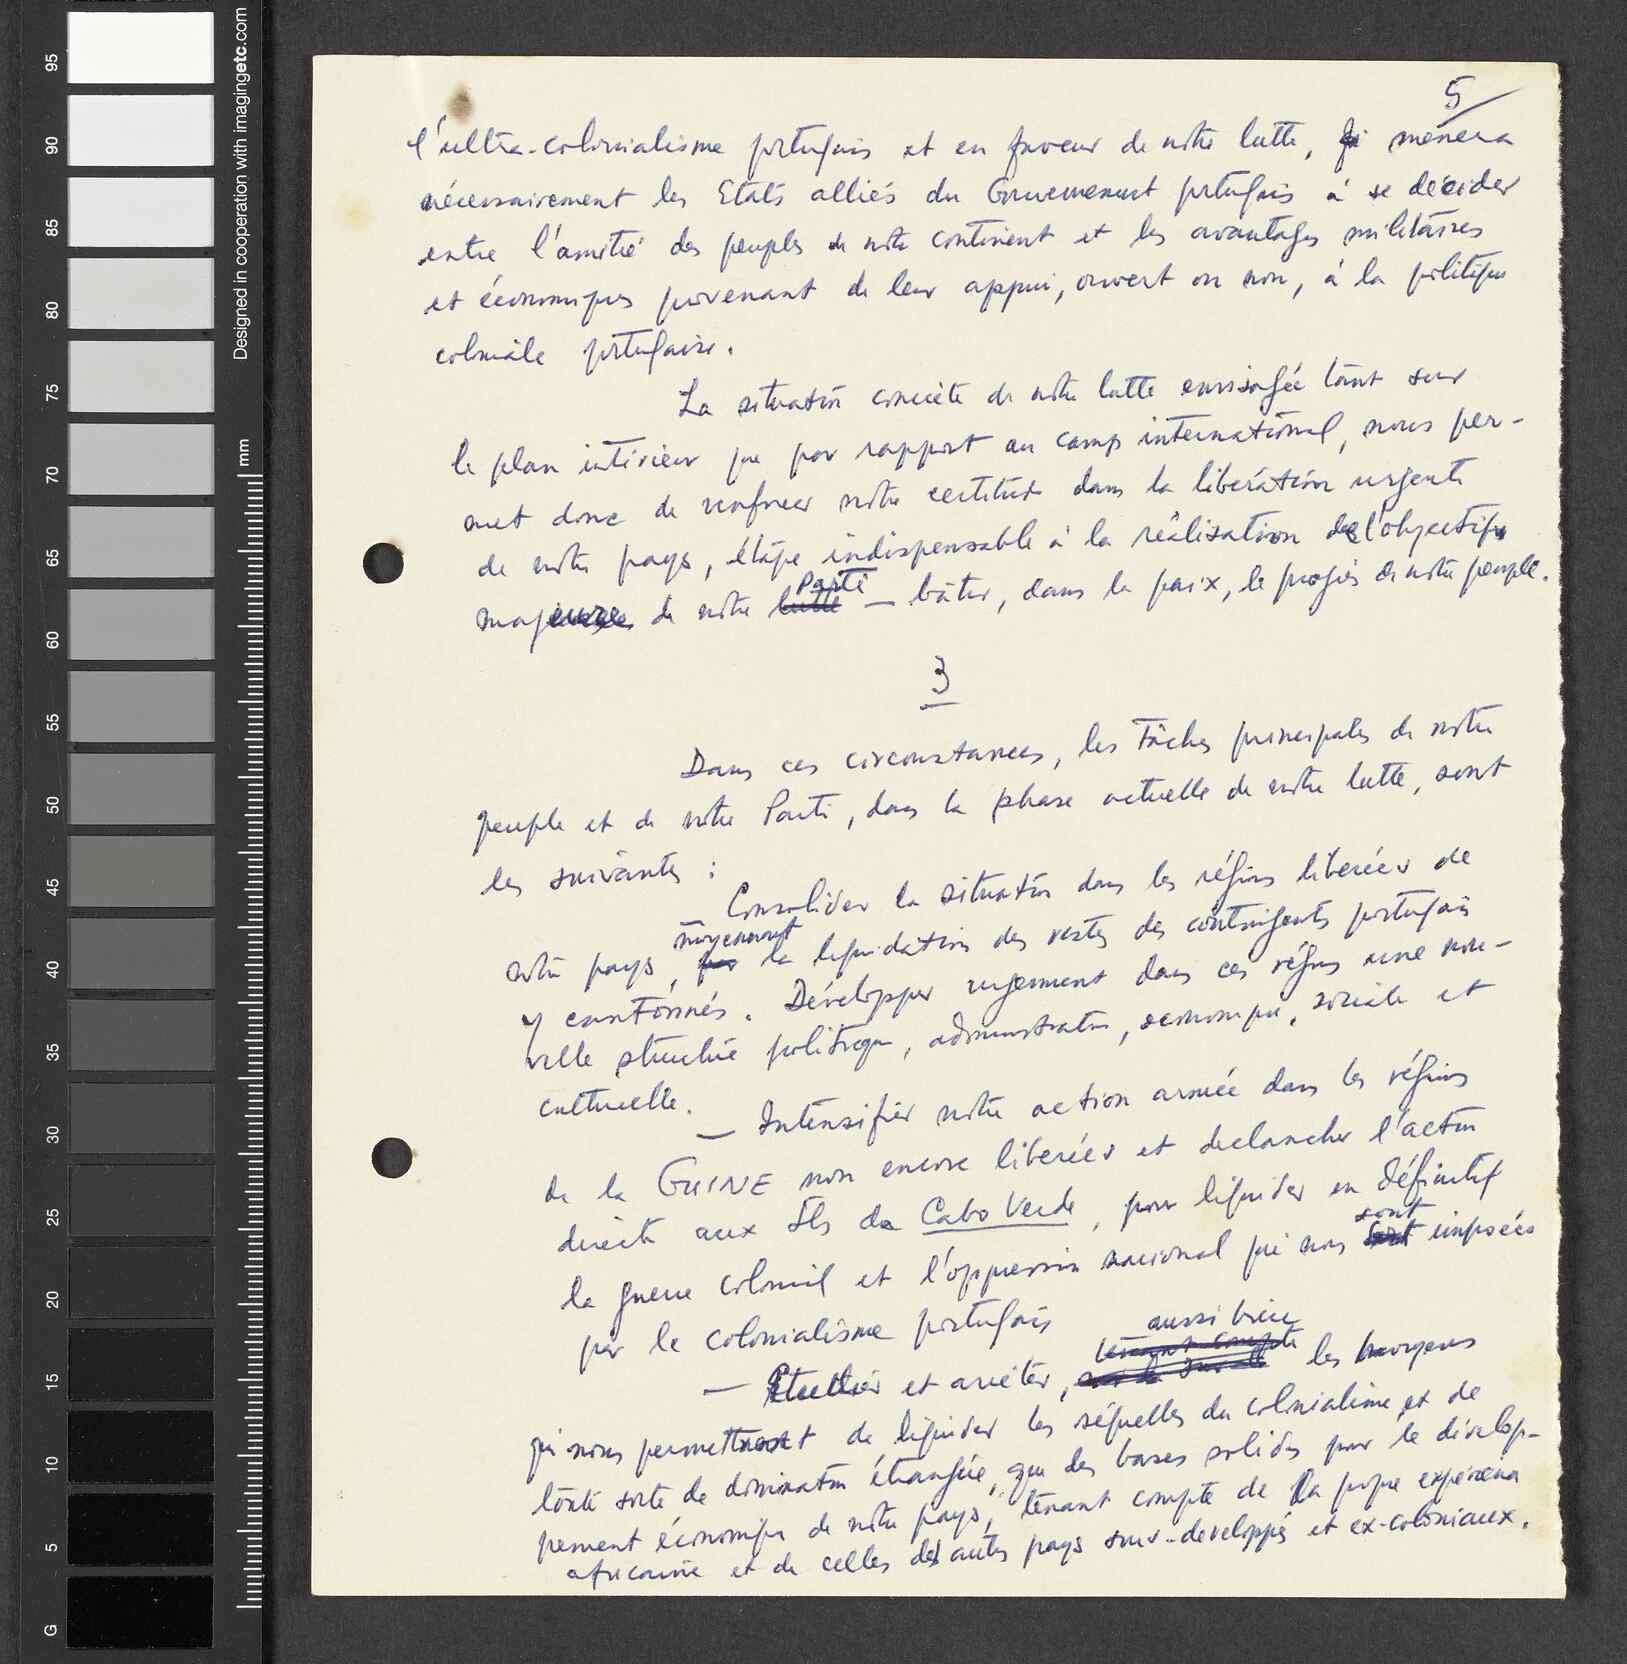 5
l'ultra-colonialisme portugais et en faveur de notre lutte, qui mènera
nécessairement les Etats alliés du Gouvernement portugais à se décider
entre l'amitié des peuples de notre continent et les avantages militaires
et économiques provenant de leur appui, ouvert ou non, à la politique
coloniale portugaise.
La situation concrète de notre lutte envisagée tant sur
le plan intérieur que par rapport au camp international, nous per-
met donc de renforcer notre certitude dans la libération urgente
de notre pays, étape indispensable à la réalisation de l'objectif
majeure de notre lutte Parti — bâtir, dans la paix, le progrès de notre peuple.
3
Dans ces circonstances, les tâches principales de notre
peuple et de notre Parti, dans la phase actuelle de notre lutte, sont
les suivantes :
— Consolider la situation dans les régions liberées de
notre pays, par moyennant la liquidation des restes des contingents portugais
y cantonnés. Développer urgemment dans ces régions une nou-
velle structure politique, administrative, economique, sociale et
culturelle.
— Intensifier notre action armée dans les régions
de la GUINE non encore liberées et declancher l'action
directe aux îles de Cabo Verde, pour liquider en définitif
la guerre colonial et l'oppression nacional qui nous sont imposées
par le colonialisme portugais
— Etudier et arrêter, tenant compte aussi bien les moyens
qui nous permettront de liquider les séquelles du colonialisme et de
toute sorte de domination étrangère, que des bases solides pour le dévelop-
pement économique de notre pays, tenant compte de la propre expérience
africaine et de celles des autres pays sous-developpés et ex-coloniaux.
Designed in cooperation with imagingetc.com
mm
95
90
85
80
75
70
65
60
55
50
45
40
35
30
25
20
15
10
5
G